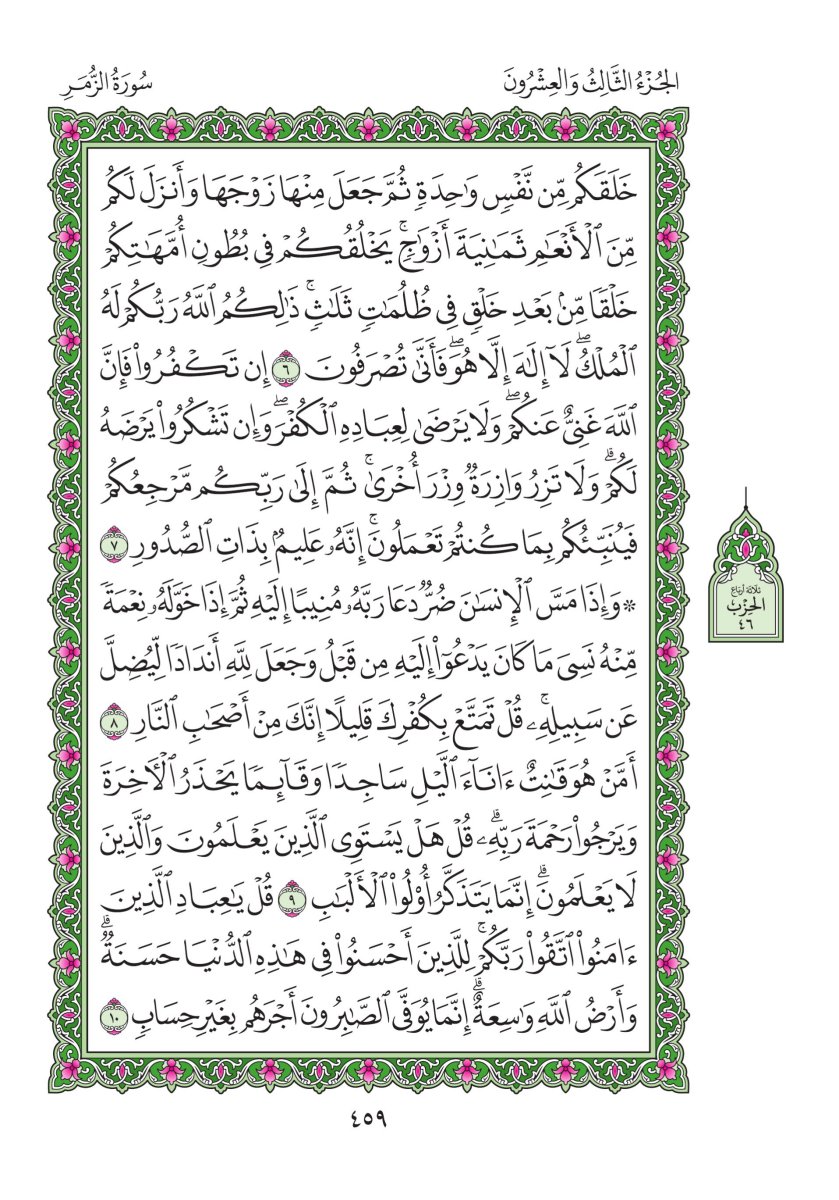 الجُزْءُ الثَّالِثُ وَالعِشْرُونَ
سُورَةُ الزُّمَرِ
خَلَقَكُم مِّن نَّفۡسٖ وَٰحِدَةٖ ثُمَّ جَعَلَ مِنۡهَا زَوۡجَهَا وَأَنزَلَ لَكُم
مِّنَ ٱلۡأَنۡعَٰمِ ثَمَٰنِيَةَ أَزۡوَٰجٖۚ يَخۡلُقُكُمۡ فِي بُطُونِ أُمَّهَٰتِكُمۡ
خَلۡقٗا مِّنۢ بَعۡدِ خَلۡقٖ فِي ظُلُمَٰتٖ ثَلَٰثٖۚ ذَٰلِكُمُ ٱللَّهُ رَبُّكُمۡ لَهُ
ٱلۡمُلۡكُۖ لَآ إِلَٰهَ إِلَّا هُوَۖ فَأَنَّىٰ تُصۡرَفُونَ ٦ إِن تَكۡفُرُواْ فَإِنَّ
ٱللَّهَ غَنِيٌّ عَنكُمۡۖ وَلَا يَرۡضَىٰ لِعِبَادِهِ ٱلۡكُفۡرَۖ وَإِن تَشۡكُرُواْ يَرۡضَهُ
لَكُمۡۗ وَلَا تَزِرُ وَازِرَةٞ وِزۡرَ أُخۡرَىٰۚ ثُمَّ إِلَىٰ رَبِّكُم مَّرۡجِعُكُمۡ
فَيُنَبِّئُكُم بِمَا كُنتُمۡ تَعۡمَلُونَۚ إِنَّهُۥ عَلِيمُۢ بِذَاتِ ٱلصُّدُورِ ٧
۞ وَإِذَا مَسَّ ٱلۡإِنسَٰنَ ضُرّٞ دَعَا رَبَّهُۥ مُنِيبًا إِلَيۡهِ ثُمَّ إِذَا خَوَّلَهُۥ نِعۡمَةٗ
مِّنۡهُ نَسِيَ مَا كَانَ يَدۡعُوٓاْ إِلَيۡهِ مِن قَبۡلُ وَجَعَلَ لِلَّهِ أَندَادٗا لِّيُضِلَّ
عَن سَبِيلِهِۦۚ قُلۡ تَمَتَّعۡ بِكُفۡرِكَ قَلِيلًا إِنَّكَ مِنۡ أَصۡحَٰبِ ٱلنَّارِ ٨
أَمَّنۡ هُوَ قَٰنِتٌ ءَانَآءَ ٱلَّيۡلِ سَاجِدٗا وَقَآئِمٗا يَحۡذَرُ ٱلۡأٓخِرَةَ
وَيَرۡجُواْ رَحۡمَةَ رَبِّهِۦۗ قُلۡ هَلۡ يَسۡتَوِي ٱلَّذِينَ يَعۡلَمُونَ وَٱلَّذِينَ
لَا يَعۡلَمُونَۗ إِنَّمَا يَتَذَكَّرُ أُوْلُواْ ٱلۡأَلۡبَٰبِ ٩ قُلۡ يَٰعِبَادِ ٱلَّذِينَ
ءَامَنُواْ ٱتَّقُواْ رَبَّكُمۡۚ لِلَّذِينَ أَحۡسَنُواْ فِي هَٰذِهِ ٱلدُّنۡيَا حَسَنَةٞۗ
وَأَرۡضُ ٱللَّهِ وَٰسِعَةٌۗ إِنَّمَا يُوَفَّى ٱلصَّٰبِرُونَ أَجۡرَهُم بِغَيۡرِ حِسَابٖ ١٠
ثلاثة أرباع
الحِزْب
٤٦
٤٥٩